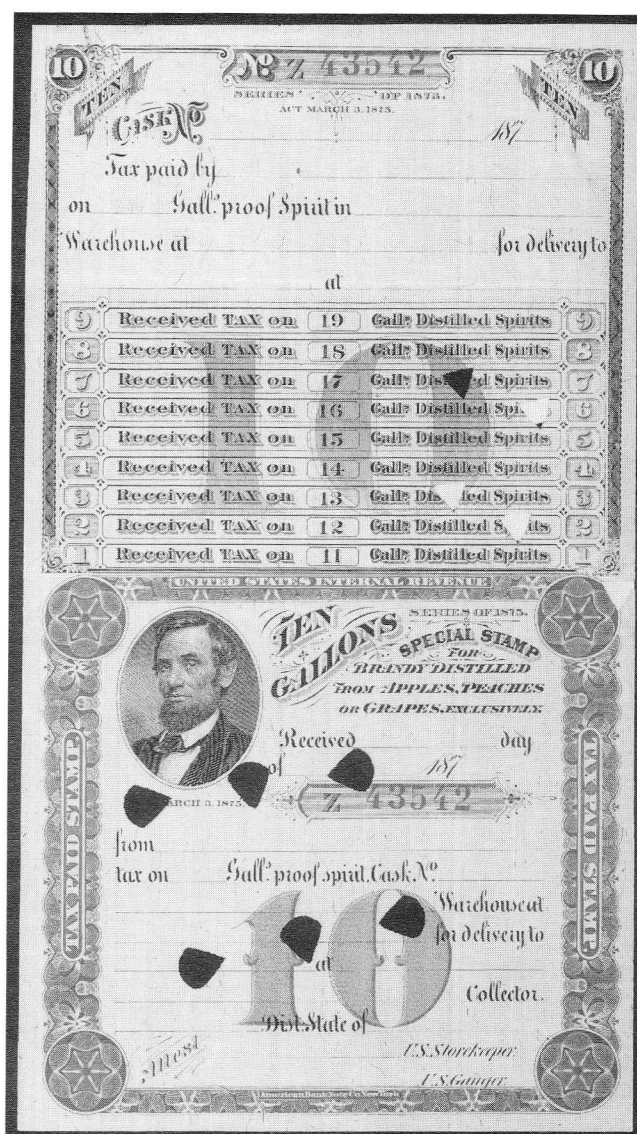 10 No Z 43542 10
TEN SERIES OF 1875. TEN
ACT MARCH 3, 1875.
Cask No 187
Tax paid by
on Galls. proof Spirit in
Warehouse at for delivery to
at
9 Received TAX on 19 Galls. Distilled Spirits 9
8 Received TAX on 18 Galls. Distilled Spirits 8
7 Received TAX on 17 Galls. Distilled Spirits 7
6 Received TAX on 16 Galls. Distilled Spi 6
5 Received TAX on 15 Galls. Distilled Spirits 5
4 Received TAX on 14 Galls. Distilled Spirits 4
3 Received TAX on 13 Galls. Distilled Spirits 3
2 Received TAX on 12 Galls. Distilled Spirits 2
1 Received TAX on 11 Galls. Distilled Spirits 1
10
UNITED STATES INTERNAL REVENUE
SERIES OF 1875.
TEN GALLONS
SPECIAL STAMP
FOR
BRANDY DISTILLED
FROM APPLES, PEACHES
OR GRAPES, EXCLUSIVELY.
Received day
of 187
ARCH 3, 1875.
Z 43542
from
tax on Galls. proof spirit, Cask No.
Warehouse at
for delivery to
at
10
Collector.
Dist. State of
Attest
U.S. Storekeeper.
U.S. Gauger.
TAX PAID STAMP
TAX PAID STAMP
American Bank Note Co. New York